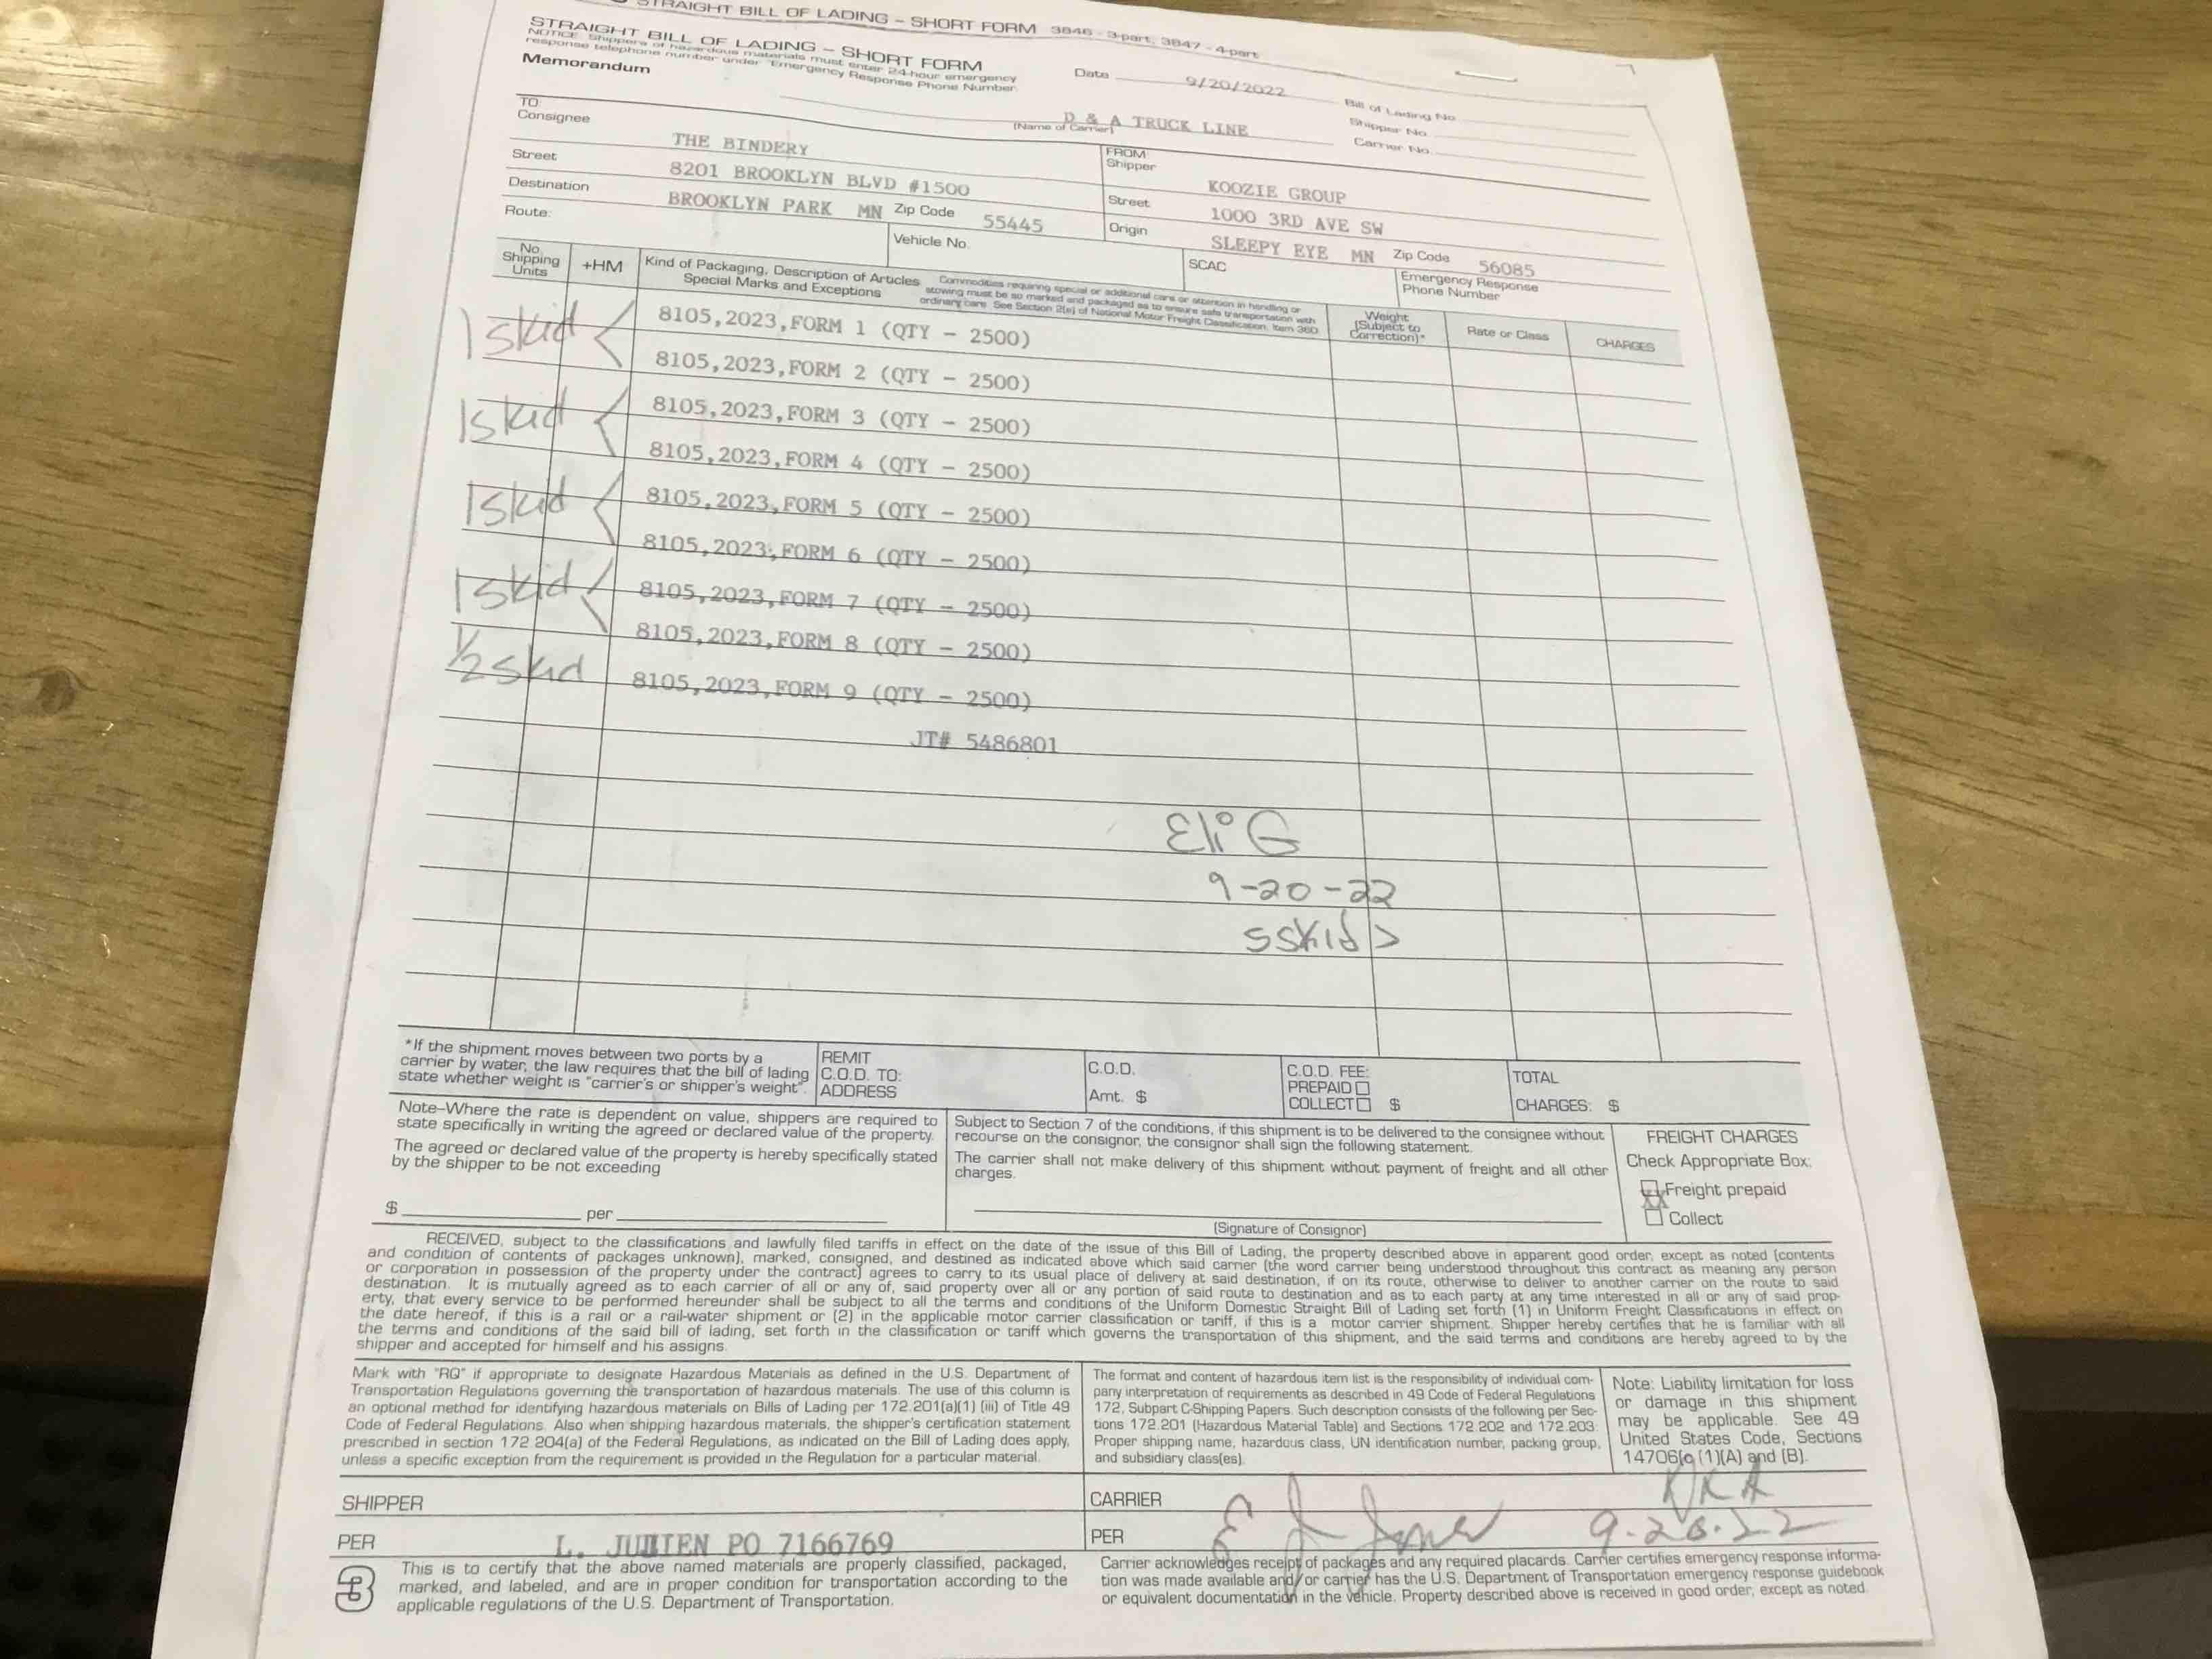 STRAIGHT BILL OF LADING – SHORT FORM 3846 - 3-part, 3847 - 4-part
STRAIGHT BILL OF LADING – SHORT FORM
NOTICE: Shippers of hazardous materials must enter 24-hour emergency
response telephone number under "Emergency Response Phone Number.
Memorandum
Date 9/20/2022
Bill of Lading No.
Shipper No.
Carrier No.
D & A TRUCK LINE
(Name of Carrier)
TO:
Consignee THE BINDERY
Street 8201 BROOKLYN BLVD #1500
Destination BROOKLYN PARK MN Zip Code 55445
FROM:
Shipper KOOZIE GROUP
Street 1000 3RD AVE SW
Origin SLEEPY EYE MN Zip Code 56085
Route:
Vehicle No.
SCAC
Emergency Response
Phone Number
No.
Shipping
Units
+HM
Kind of Packaging, Description of Articles
Special Marks and Exceptions
Commodities requiring special or additional care or attention in handling or
stowing must be so marked and packaged as to ensure safe transportation with
ordinary care. See Section 2(e) of National Motor Freight Classification, Item 360.
Weight
(Subject to
Correction)*
Rate or Class
CHARGES
1 skid
8105,2023,FORM 1 (QTY – 2500)
8105,2023,FORM 2 (QTY – 2500)
1 skid
8105,2023,FORM 3 (QTY – 2500)
8105,2023,FORM 4 (QTY – 2500)
1 skid
8105,2023,FORM 5 (QTY – 2500)
8105,2023,FORM 6 (QTY – 2500)
1 skid
8105,2023,FORM 7 (QTY – 2500)
8105,2023,FORM 8 (QTY – 2500)
1/2 skid
8105,2023,FORM 9 (QTY – 2500)
JT# 5486801
Eli G
9-20-22
5 skid >
*If the shipment moves between two ports by a
carrier by water, the law requires that the bill of lading
state whether weight is "carrier's or shipper's weight".
REMIT
C.O.D. TO:
ADDRESS
C.O.D.
Amt. $
C.O.D. FEE:
PREPAID
COLLECT $
TOTAL
CHARGES: $
Note–Where the rate is dependent on value, shippers are required to
state specifically in writing the agreed or declared value of the property.
The agreed or declared value of the property is hereby specifically stated
by the shipper to be not exceeding
$ per
Subject to Section 7 of the conditions, if this shipment is to be delivered to the consignee without
recourse on the consignor, the consignor shall sign the following statement.
The carrier shall not make delivery of this shipment without payment of freight and all other
charges.
(Signature of Consignor)
FREIGHT CHARGES
Check Appropriate Box:
Freight prepaid
Collect
RECEIVED, subject to the classifications and lawfully filed tariffs in effect on the date of the issue of this Bill of Lading, the property described above in apparent good order, except as noted (contents
and condition of contents of packages unknown), marked, consigned, and destined as indicated above which said carrier (the word carrier being understood throughout this contract as meaning any person
or corporation in possession of the property under the contract) agrees to carry to its usual place of delivery at said destination, if on its route, otherwise to deliver to another carrier on the route to said
destination. It is mutually agreed as to each carrier of all or any of, said property over all or any portion of said route to destination and as to each party at any time interested in all or any of said prop-
erty, that every service to be performed hereunder shall be subject to all the terms and conditions of the Uniform Domestic Straight Bill of Lading set forth (1) in Uniform Freight Classifications in effect on
the date hereof, if this is a rail or a rail-water shipment or (2) in the applicable motor carrier classification or tariff, if this is a motor carrier shipment. Shipper hereby certifies that he is familiar with all
the terms and conditions of the said bill of lading, set forth in the classification or tariff which governs the transportation of this shipment, and the said terms and conditions are hereby agreed to by the
shipper and accepted for himself and his assigns.
Mark with "RQ" if appropriate to designate Hazardous Materials as defined in the U.S. Department of
Transportation Regulations governing the transportation of hazardous materials. The use of this column is
an optional method for identifying hazardous materials on Bills of Lading per 172.201(a)(1) (iii) of Title 49
Code of Federal Regulations. Also when shipping hazardous materials, the shipper's certification statement
prescribed in section 172.204(a) of the Federal Regulations, as indicated on the Bill of Lading does apply,
unless a specific exception from the requirement is provided in the Regulation for a particular material.
The format and content of hazardous item list is the responsibility of individual com-
pany interpretation of requirements as described in 49 Code of Federal Regulations
172, Subpart C-Shipping Papers. Such description consists of the following per Sec-
tions 172.201 (Hazardous Material Table) and Sections 172.202 and 172.203:
Proper shipping name, hazardous class, UN identification number, packing group,
and subsidiary class(es).
Note: Liability limitation for loss
or damage in this shipment
may be applicable. See 49
United States Code, Sections
14706(c)(1)(A) and (B).
SHIPPER
CARRIER
PER L. JULIEN PO 7166769
PER 9.20.22
3
This is to certify that the above named materials are properly classified, packaged,
marked, and labeled, and are in proper condition for transportation according to the
applicable regulations of the U.S. Department of Transportation.
Carrier acknowledges receipt of packages and any required placards. Carrier certifies emergency response informa-
tion was made available and/or carrier has the U.S. Department of Transportation emergency response guidebook
or equivalent documentation in the vehicle. Property described above is received in good order, except as noted.